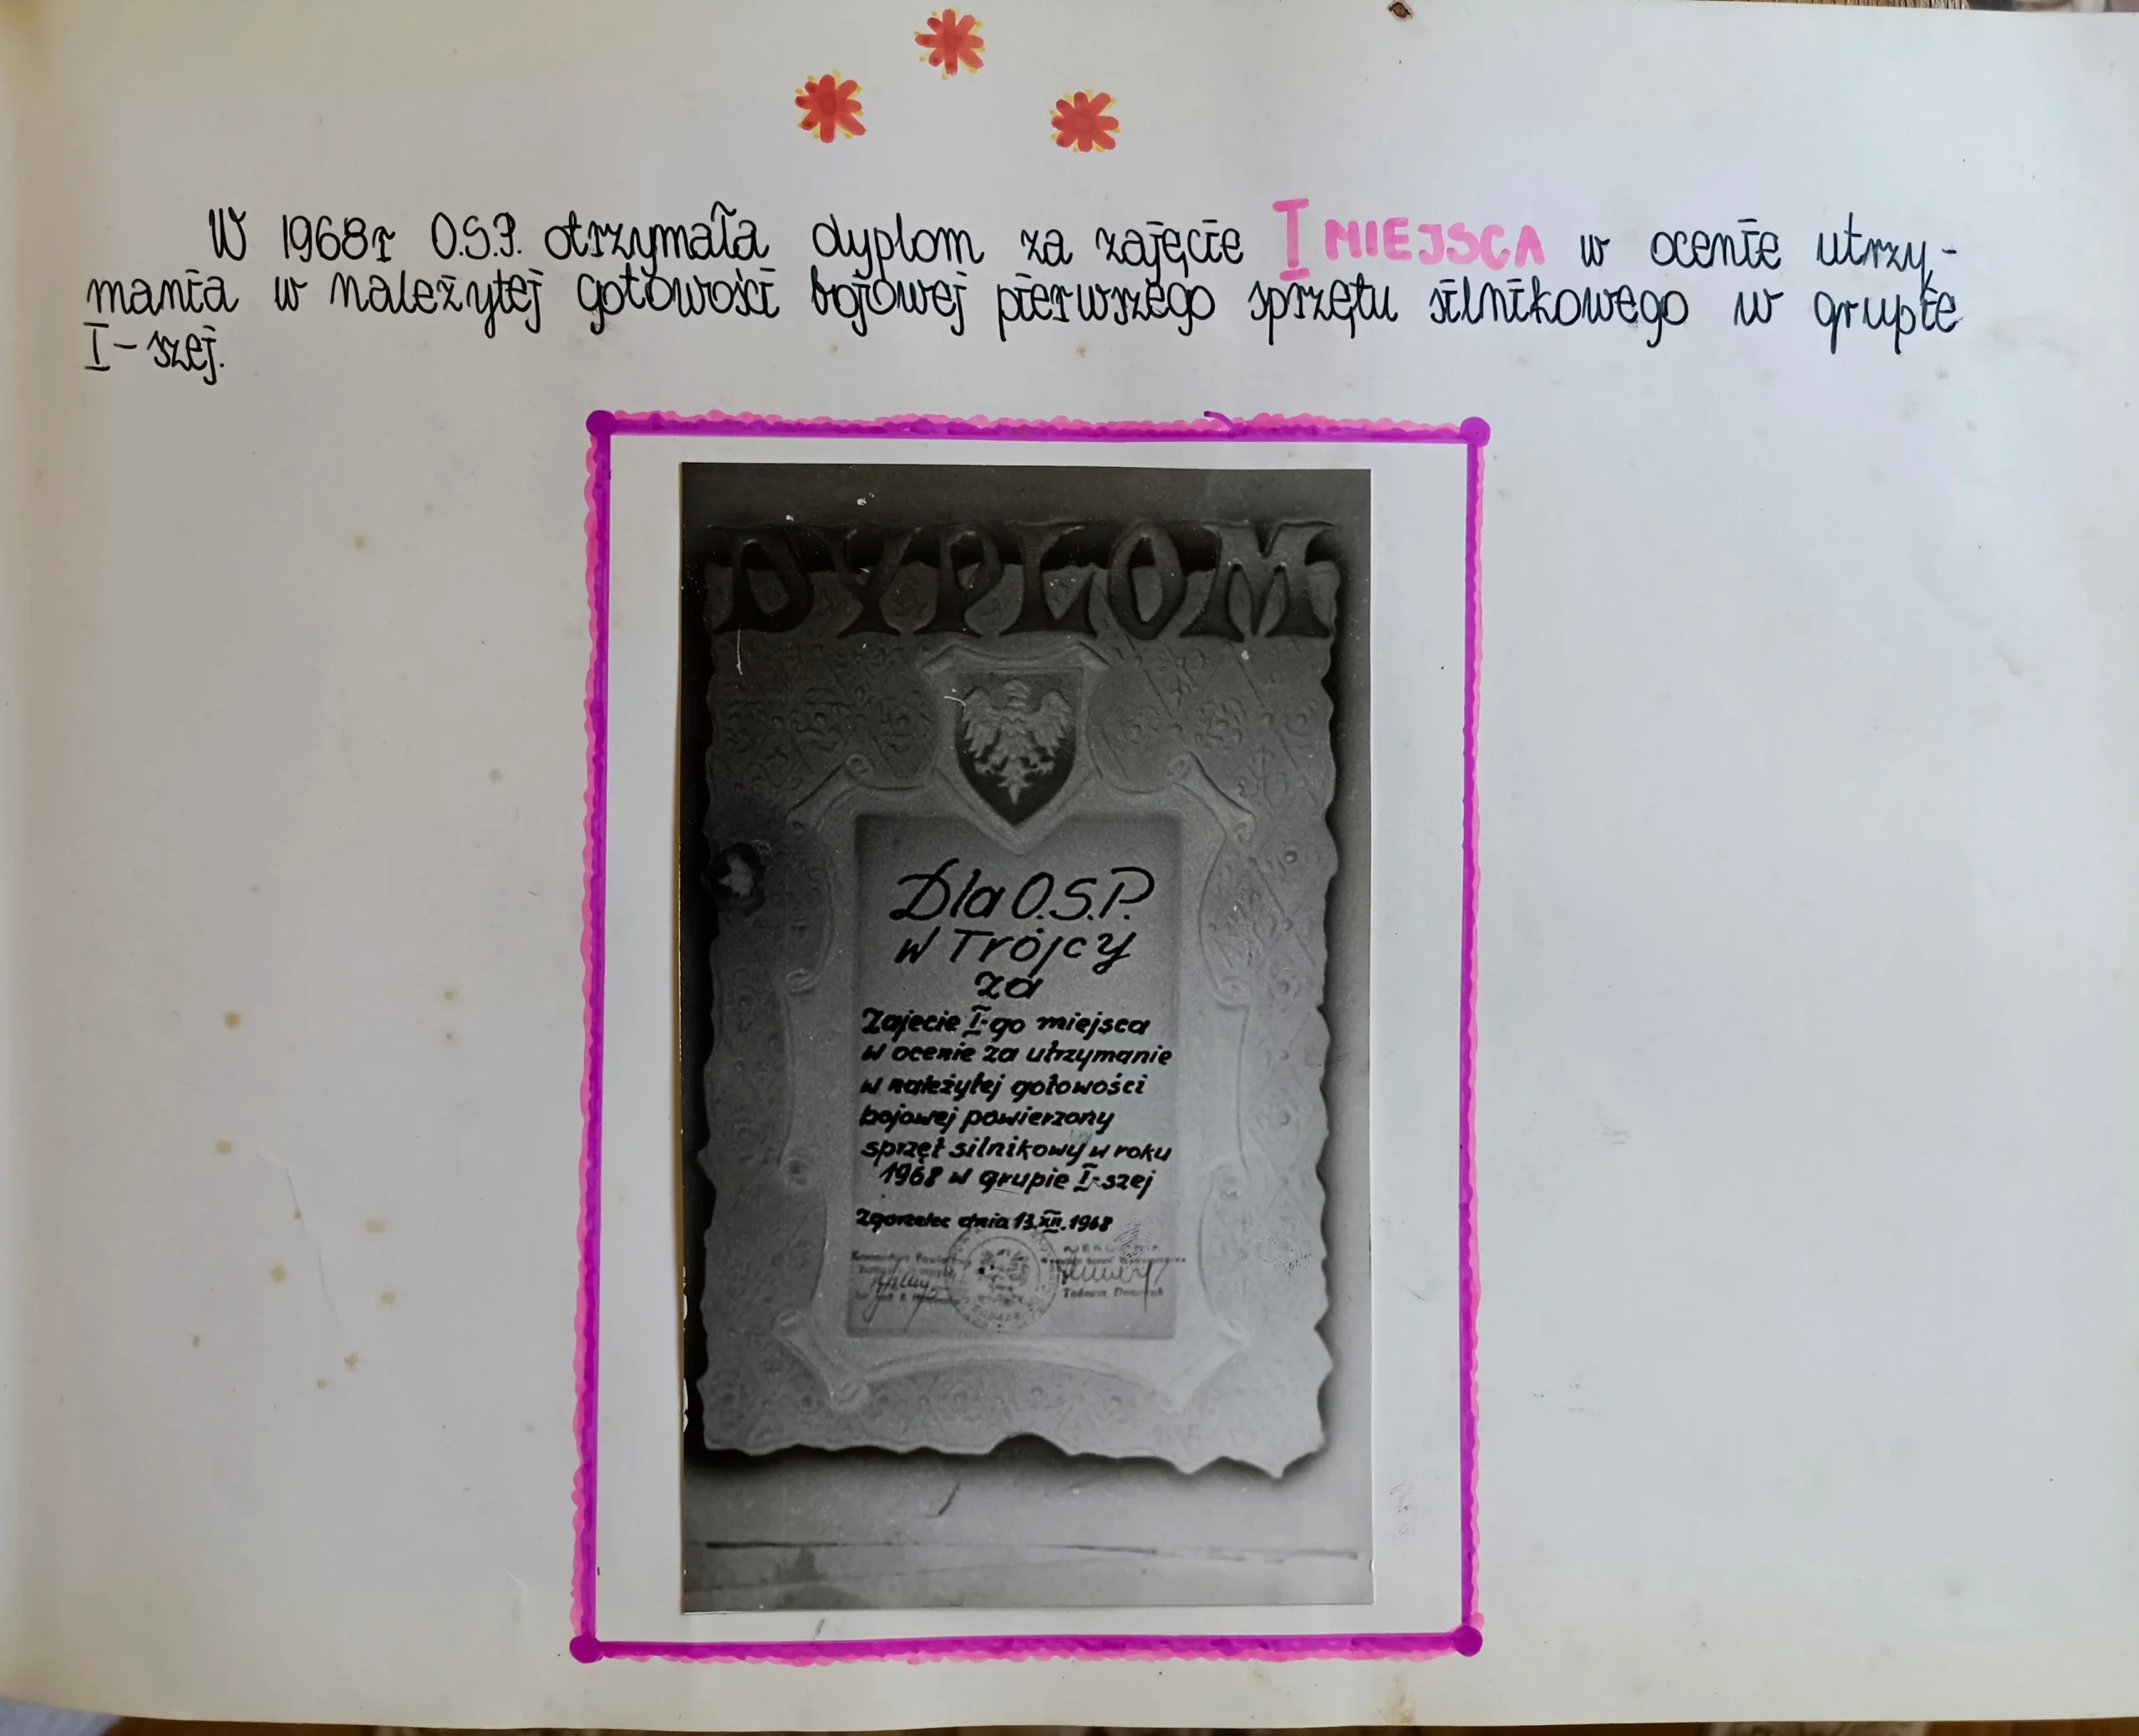 W 1968r O.S.P. otrzymała dyplom za zajęcie I MIEJSCA w ocenie utrzy-
mania w należytej gotowości bojowej pierwszego sprzętu silnikowego w grupie
I-szej.
DYPLOM
Dla O.S.P.
w Trójcy
za
Zajęcie I-go miejsca
w ocenie za utrzymanie
w należytej gotowości
bojowej powierzony
sprzęt silnikowy w roku
1968 w grupie I-szej
Zgorzelec dnia 13.XII.1968
Tadeusz